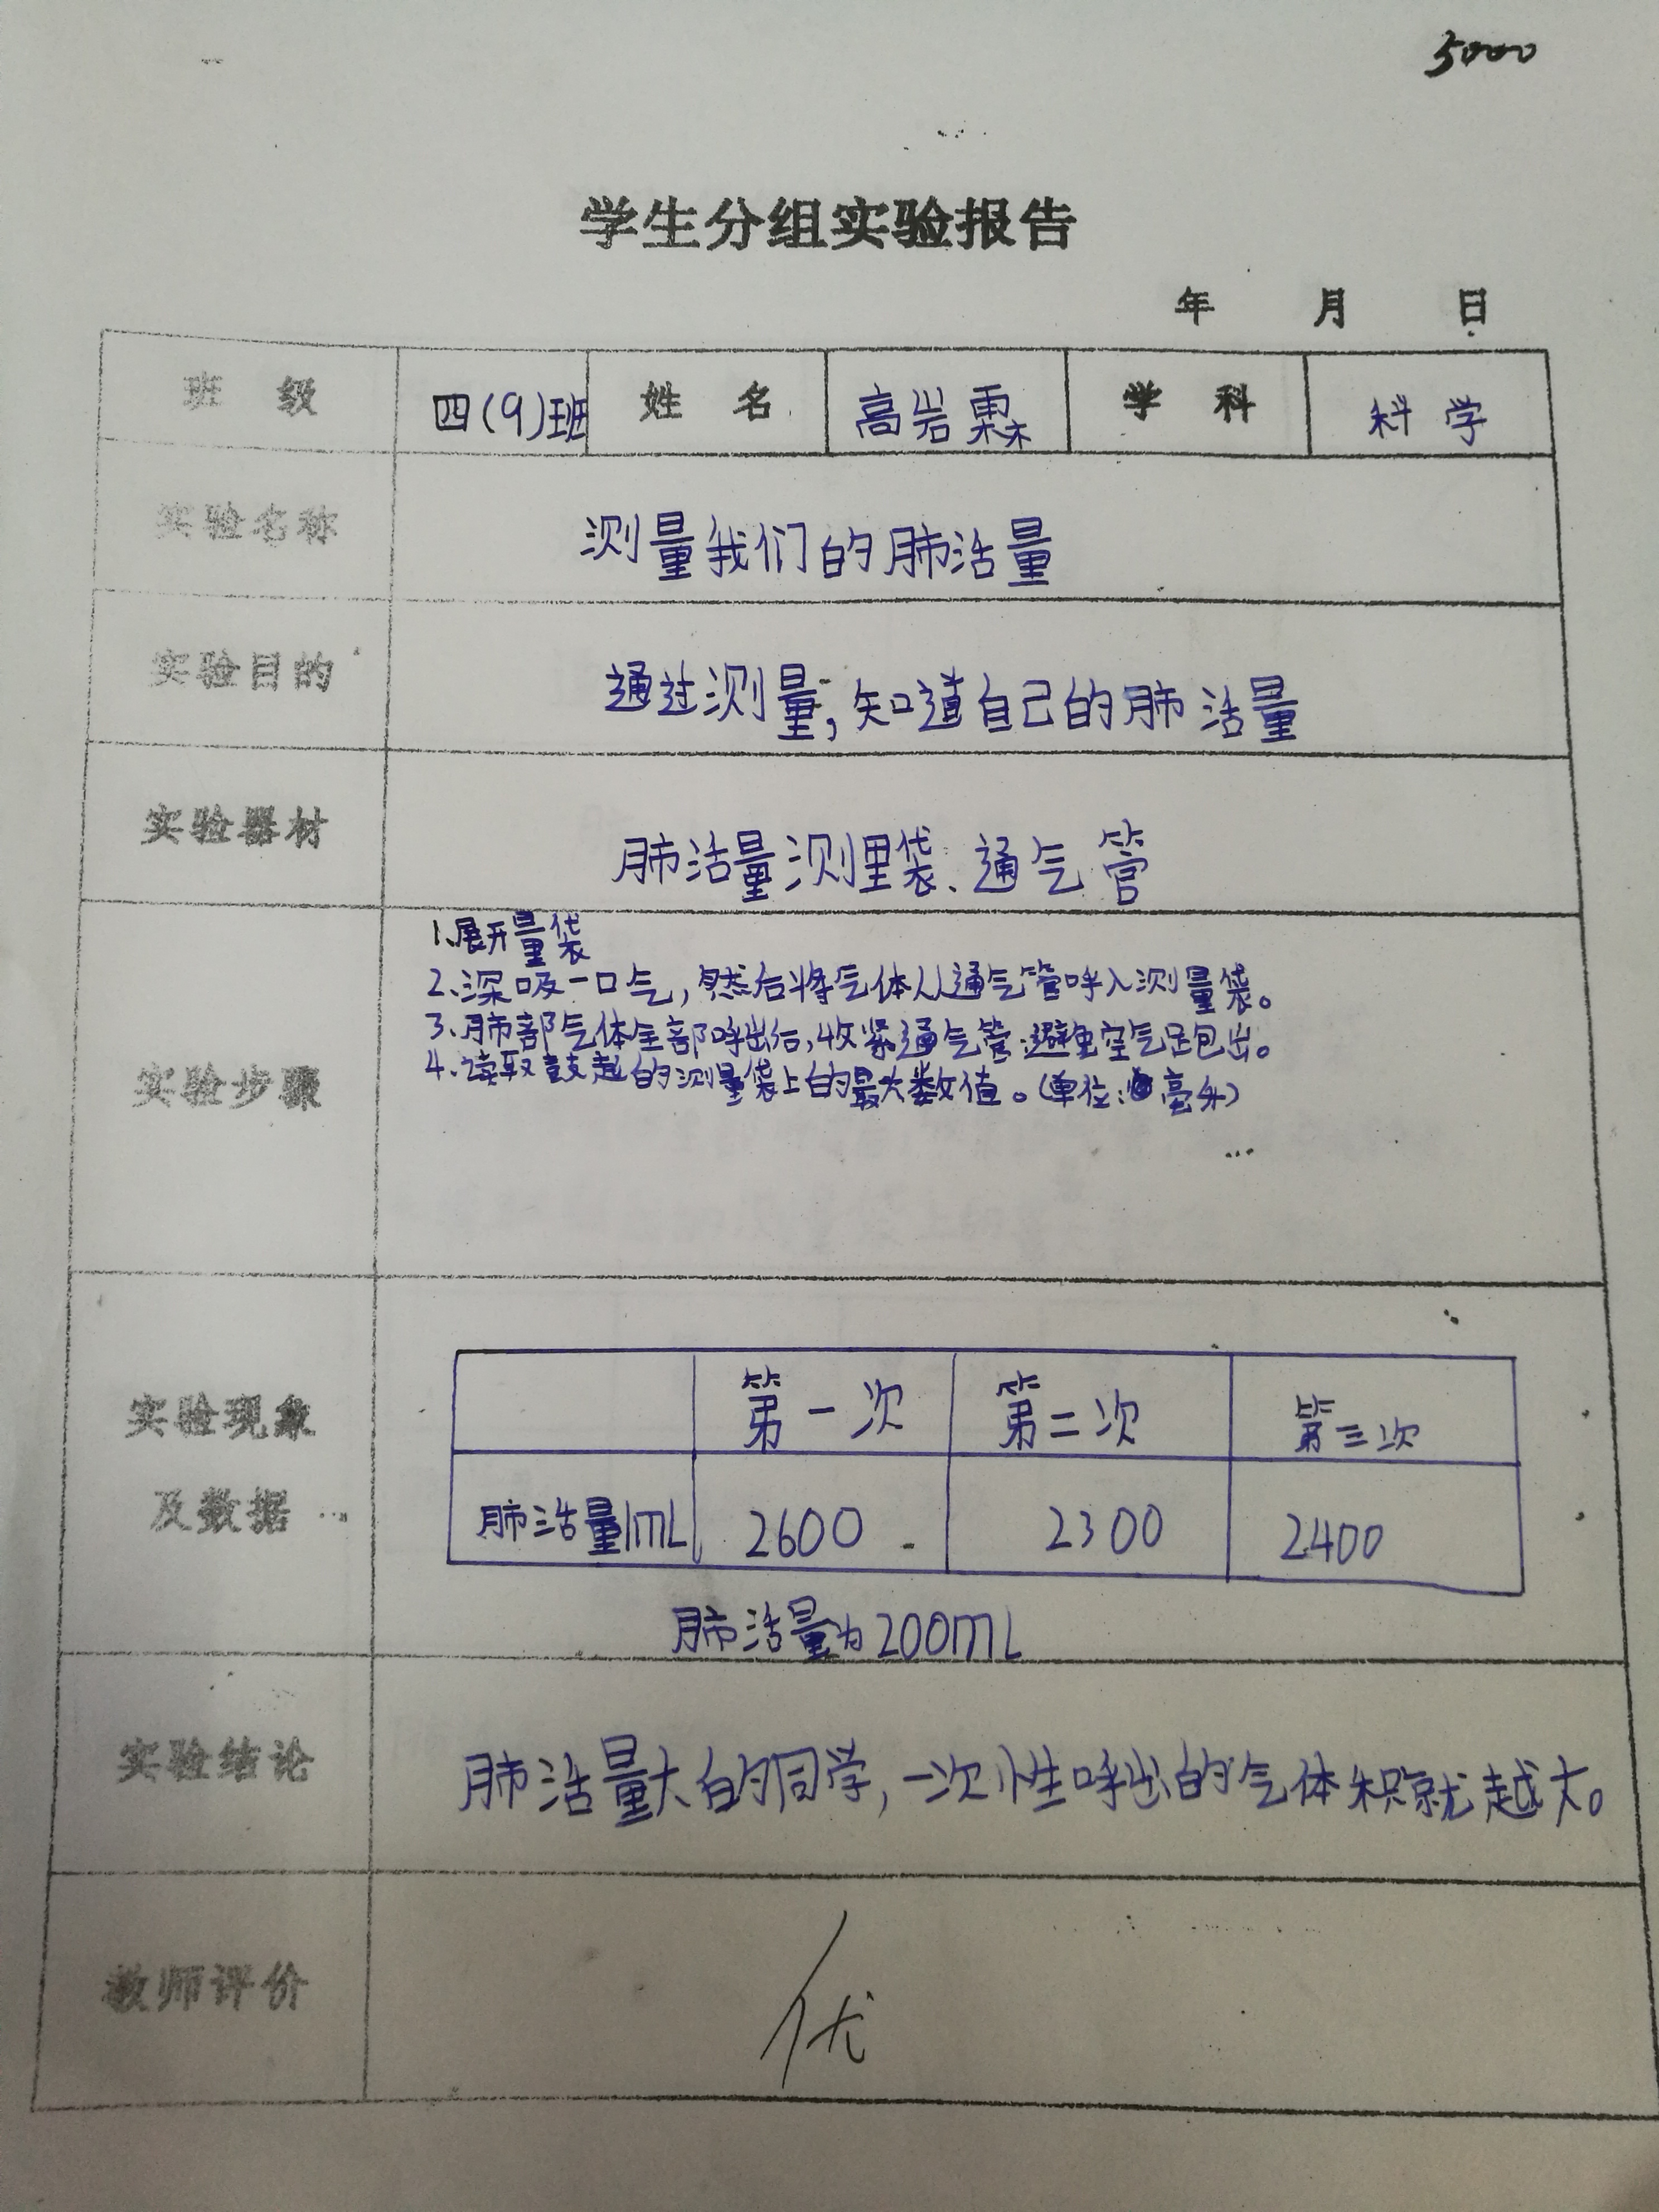 5000
学生分组实验报告
年 月 日
班 级 四(9)班 姓 名 高岩霖 学 科 科学
实验名称 测量我们的肺活量
实验目的 通过测量,知道自己的肺活量
实验器材 肺活量测量袋、通气管
实验步骤
1、展开量袋
2、深吸一口气,然后将气体从通气管呼入测量袋。
3、肺部气体全部呼出后,收紧通气管,避免空气跑出。
4、读取鼓起的测量袋上的最大数值。(单位:毫升)
实验现象
及数据
第一次 第二次 第三次
肺活量/mL 2600 2300 2400
肺活量为200mL
实验结论 肺活量大的同学,一次性呼出的气体积就越大。
教师评价 优